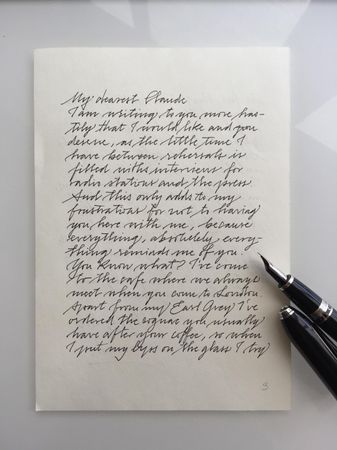 My dearest Claude
I am writing to you more has-
tily that I would like and you
deserve, as the little time I
have between rehersals is
filled with interviews for
radio stations and the press.
And this only adds to my
frustrations for not to having
you here with me, because
everything, absolutely every
thing reminds me of you.
You know what? I've come
to the cafe where we always
meet when you come to London.
Apart from my Earl Grey I've
ordered the cognac you usually
have after your coffee, so when
I put my lips on the glass I try
3